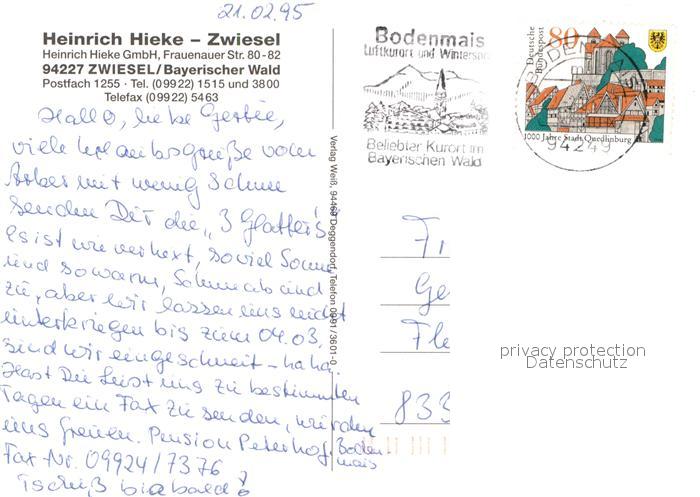 21.02.95
Heinrich Hieke – Zwiesel
Heinrich Hieke GmbH, Frauenauer Str. 80-82
94227 ZWIESEL/Bayerischer Wald
Postfach 1255 · Tel. (09922) 1515 und 3800
Telefax (09922) 5463
Hallo, liebe
viele Urlaubsgrüße vom
Arber mit wenig Schnee
senden Dir die „3
es ist wie verhext, soviel Sonne
und so warm, Schnee ab und
zu, aber wir lassen uns nicht
unterkriegen bis zum 04.03.
sind wir eingeschneit – haha.
Hast Du Lust uns zu bestimmten
Tagen ein Fax zu senden, würden
uns freuen. Pension Peterhof, Boden-
mais
Fax-Nr. 09924/7376
Tschüß bis bald
Verlag Weiß, 94469 Deggendorf, Telefon 0991/3601-0
Bodenmais
Luftkurort und Winterspo
Beliebter Kurort im
Bayerischen Wald
Deutsche
Bundespost
80
1000 Jahre Stadt Quedlinburg
BODENMAIS
94249
Fr
Ge
Fle
833
privacy protection
Datenschutz